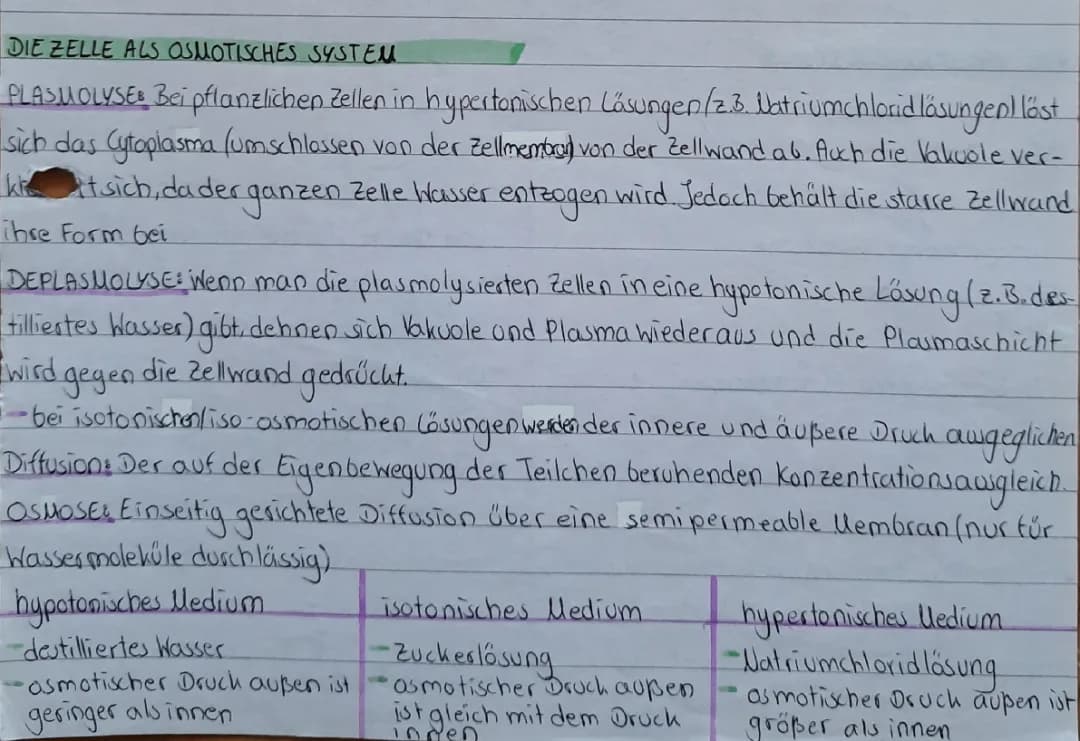 DIE ZELLE ALS OSMOTISCHES SYSTEM
PLASMOLYSE: Bei pflanzlichen Zellen in hypertonischen Lösungen (z.B. Natriumchloridlösungen) löst
sich das Cytoplasma (umschlossen von der Zellmembran) von der Zellwand ab. Auch die Vakuole ver-
sich, da der ganzen Zelle Wasser entzogen wird. Jedoch behält die starre Zellwand
ihre Form bei
DEPLASMOLYSE: Wenn man die plasmolysierten Zellen in eine hypotonische Lösung (z.B. des-
tilliertes Wasser) gibt, dehnen sich Vakuole und Plasma wieder aus und die Plasmaschicht
wird gegen die Zellwand gedrückt.
- bei isotonischen/iso-osmotischen Lösungen werden der innere und äußere Druck ausgeglichen
Diffusion: Der auf der Eigenbewegung der Teilchen beruhenden Konzentrationsausgleich.
OSMOSE: Einseitig gerichtete Diffusion über eine semipermeable Membran (nur für
Wassermoleküle durchlässig)
hypotonisches Medium
- destilliertes Wasser
- osmotischer Druck außen ist
geringer als innen
isotonisches Medium
- Zuckerlösung
- osmotischer Druck außen
ist gleich mit dem Druck
innen
hypertonisches Medium
- Natriumchloridlösung
- osmotischer Druck außen ist
größer als innen